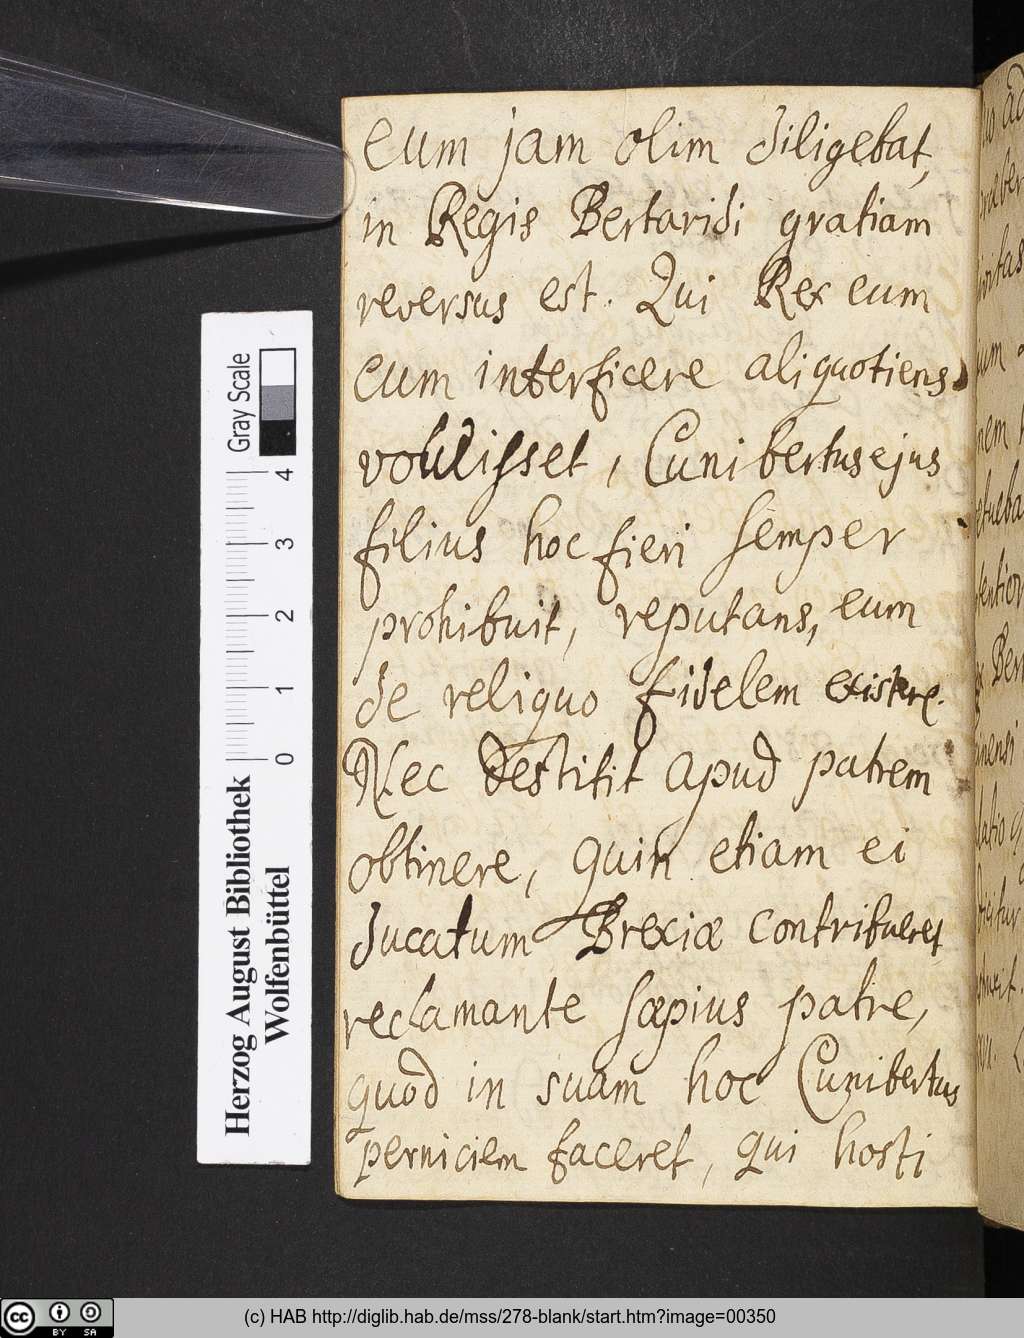 eum jam olim diligebat,
in Regis Bertaridi gratiam
reversus est. Qui Rex eum
cum interficere aliquotiens
voluisset, Cunibertus ejus
filius hoc fieri semper
prohibuit, reputans, eum
de reliquo fidelem existere.
Nec destitit apud patrem
obtinere, quin etiam ei
ducatum Brexiæ contribueret,
reclamante sæpius patre,
quod in suam hoc Cunibertus
perniciem faceret, qui hosti
Gray Scale
4
3
2
1
0
Herzog August Bibliothek
Wolfenbüttel
cc BY SA
(c) HAB http://diglib.hab.de/mss/278-blank/start.htm?image=00350